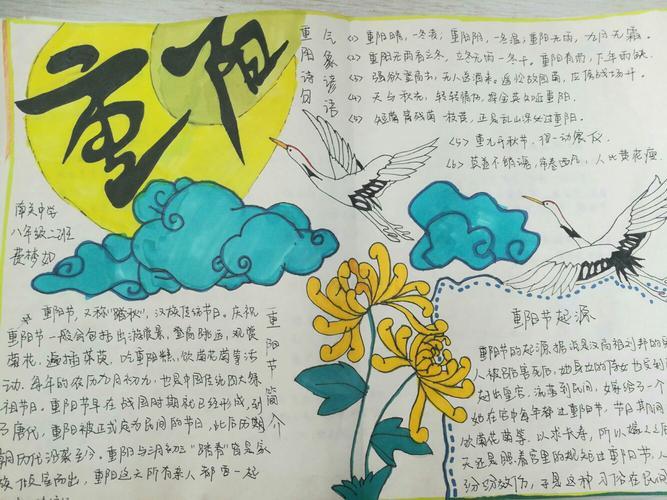 重阳
南关中学
八年级二班
重阳诗句
气象谚语
<1> 重阳晴,一冬凌;重阳阴,一冬温;重阳无雨,九月无霜。
<2> 重阳无雨看立冬,立冬无雨一冬干。重阳有雨,下年雨缺。
<3> 强欲登高去,无人送酒来。遥怜故园菊,应傍战场开。
<4> 天与秋光,转转情伤,探金英知近重阳。
<5> 短篱残菊一枝黄,正是乱山深处过重阳。
<5> 重九开秋节,得一动宸仪。
<6> 莫道不销魂,帘卷西风,人比黄花瘦。
重阳节简介
重阳节,又称"踏秋",汉族传统节日。庆祝
重阳节一般会包括出游赏景、登高眺远、观赏
菊花、遍插茱萸、吃重阳糕、饮菊花酒等活
动。每年的农历九月初九,也是中国传统四大祭
祖节日。重阳节早在战国时期就已经形成,到
了唐代,重阳被正式定为民间的节日,此后历
朝历代沿袭至今。重阳与三月初三"踏春"皆是家
族倾室而出,重阳这天所有亲人都要一起
重阳节起源
重阳节的起源,据说是汉高祖刘邦的
人被
出皇宫,流落到民间,嫁给了一个
她在宫中每年都过重阳节,节日其间
饮菊花酒等,以求长寿,所以
天还是照着宫里的规矩过重阳节,人
纷纷效仿,于是这种习俗在民